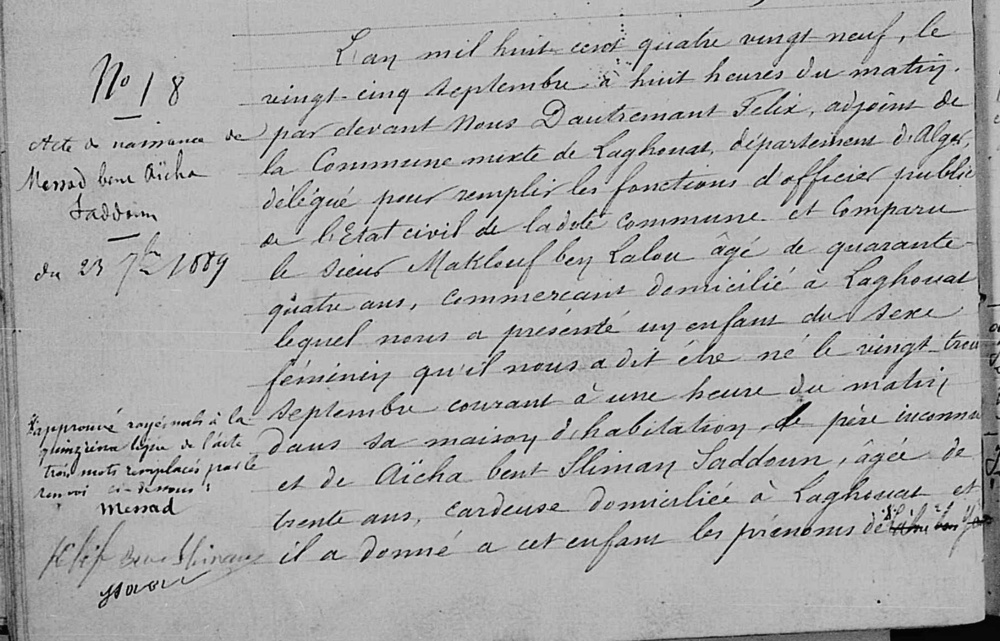 No 18
Acte de naissance de
Messad bent Aïcha
Saddoun
du 23 7bre 1889
L'an mil huit cent quatre vingt neuf, le
vingt-cinq septembre à huit heures du matin.
par devant Nous Dautremant Felix, adjoint de
la Commune mixte de Laghouat, département d'Alger,
délégué pour remplir les fonctions d'officier public
de l'Etat civil de ladite commune et comparu
le sieur Maklouf ben Lalou âgé de quarante-
quatre ans, commerçant domicilié à Laghouat
lequel nous a présenté un enfant du sexe
féminin qu'il nous a dit être né le vingt-trois
septembre courant à une heure du matin
dans sa maison d'habitation, de père inconnu
et de Aïcha bent Sliman Saddoun, âgée de
trente ans, cardeuse domiciliée à Laghouat et
il a donné a cet enfant les prénoms de
approuvé rayés nuls à la
quinzième ligne de l'acte
trois mots remplacés par le
renvoi ci-dessous:
Messad